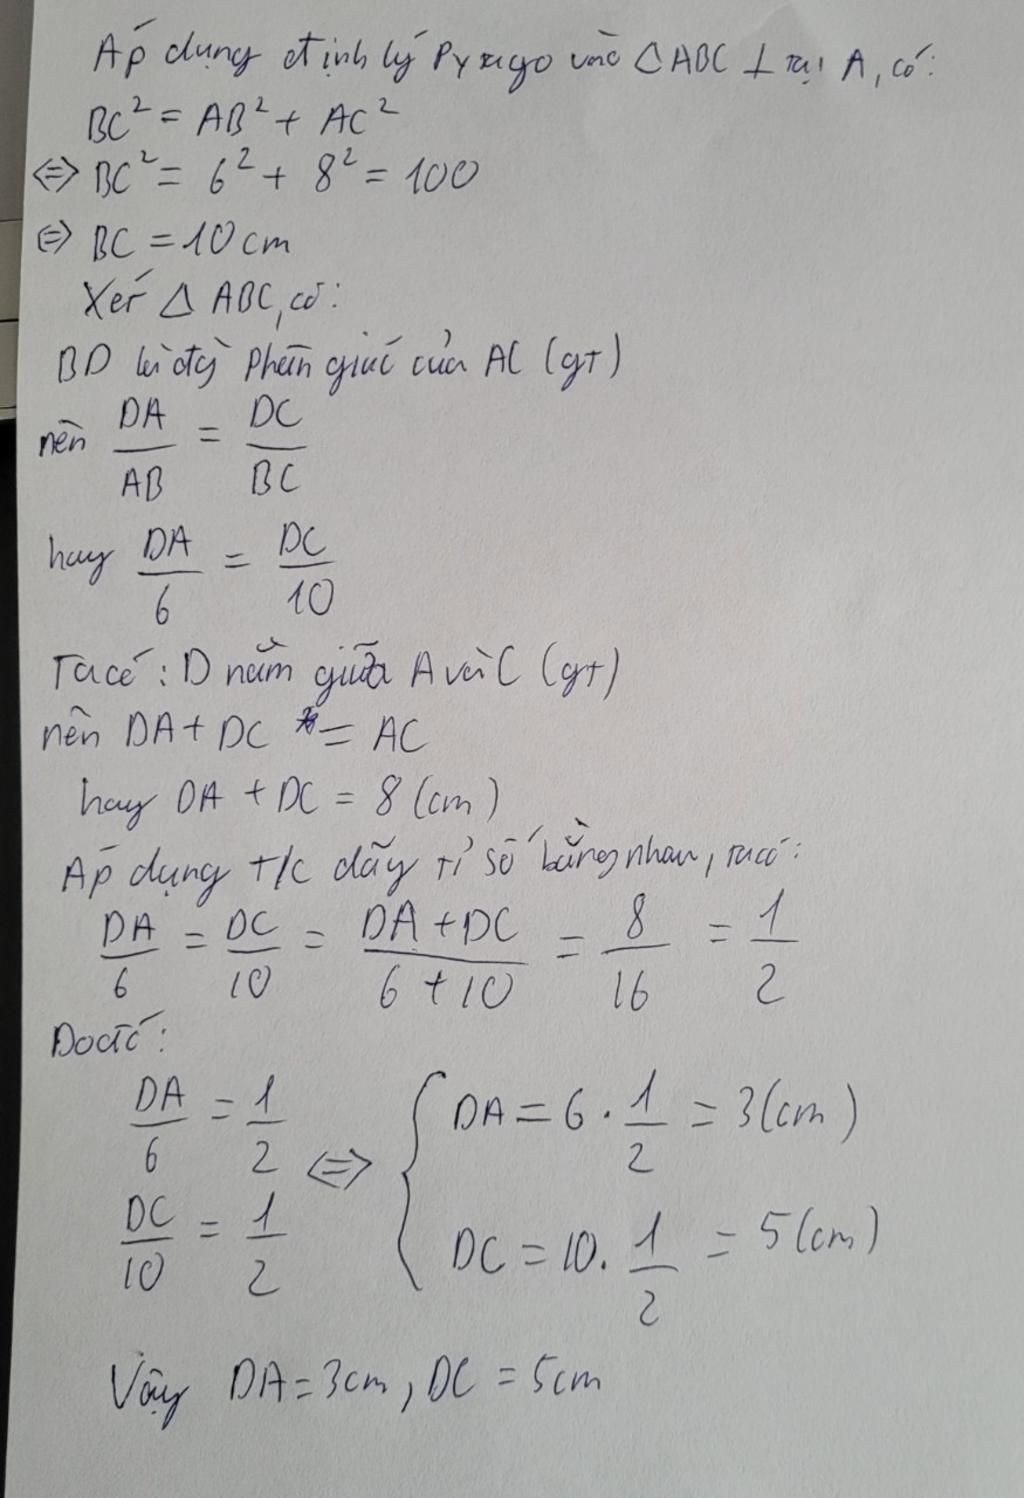 Áp dụng định lý Pytago vào △ABC ⊥ tại A, có:
BC² = AB² + AC²
⇔ BC² = 6² + 8² = 100
⇔ BC = 10 cm
Xét △ ABC, có:
BD là đg phân giác của AC (gt)
nên DA/AB = DC/BC
hay DA/6 = DC/10
Ta có: D nằm giữa A và C (gt)
nên DA + DC = AC
hay DA + DC = 8 (cm)
Áp dụng t/c dãy tỉ số bằng nhau, ta có:
DA/6 = DC/10 = (DA + DC)/(6 + 10) = 8/16 = 1/2
Do đó:
DA/6 = 1/2 ⇔ { DA = 6 . 1/2 = 3 (cm)
DC/10 = 1/2 DC = 10 . 1/2 = 5 (cm)
Vậy DA = 3cm, DC = 5cm